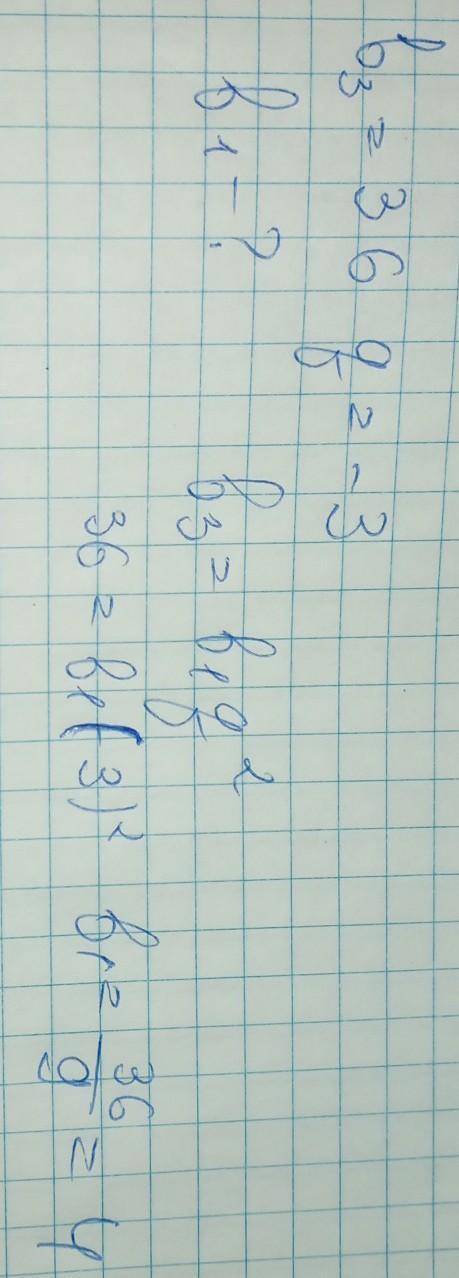 b3 = 36 q = -3
b1 - ?
b3 = b1q²
36 = b1(-3)² b1 = 36/9 = 4